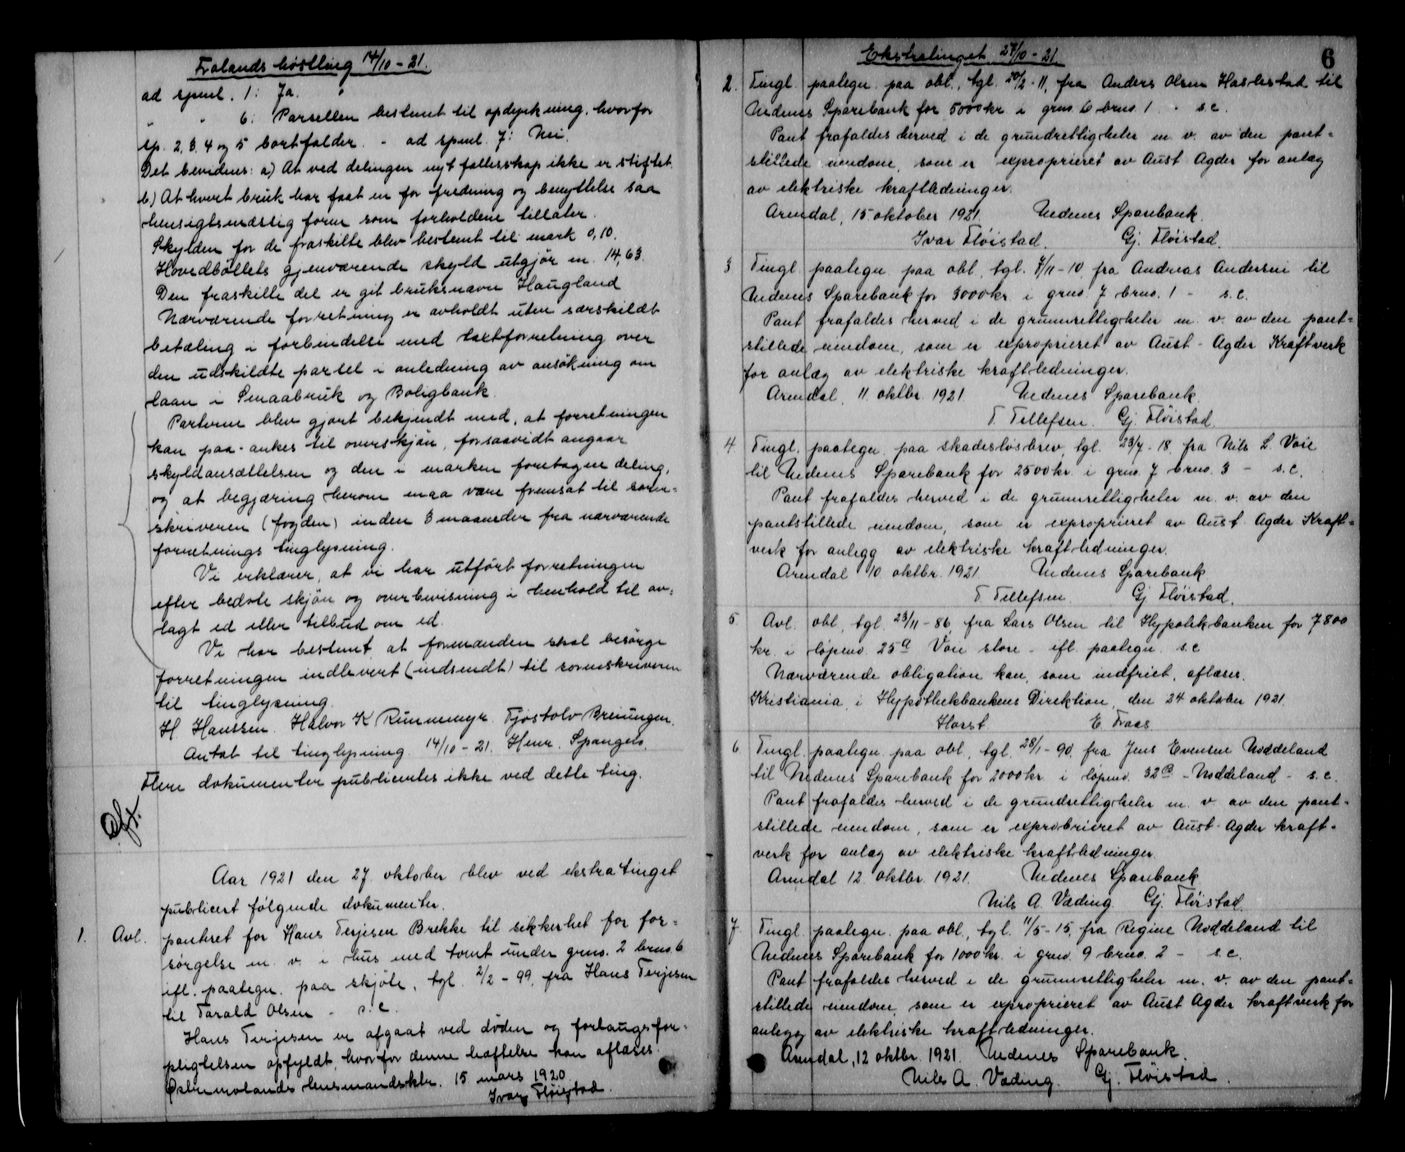 Frolands høstting 14/10 - 21.
ad spml. 1: Ja.
" " 6: Parsellen bestemt til opdyrkning, hvorfor
sp. 2, 3, 4 og 5 bortfalder. - ad spml. 7: Nei.
Det bevidnes: a) At ved delingen nyt fællesskap ikke er stiftet
b) At hvert bruk har faat en for fredning og benyttelse saa
hensigtsmæssig form som forholdene tillater.
Skylden for de fraskilte blev bestemt til mark 0,10.
Hovedbøllets gjenværende skyld utgjør m. 14,63.
Den fraskilte del er git bruksnavn Haugland
Nærværende forretning er avholdt uten særskildt
betaling i forbindelse med taxtforretning over
den utskildte parsel i anledning av ansøkning om
laan i Smaabruk og Boligbank.
Parterne blev gjort bekjendt med, at forretningen
kan paa-ankes til overskjøn, forsaavidt angaar
skyldansættelsen og den i marken foretagne deling,
og at begjæring herom maa være fremsat til soren-
skriveren (fogden) inden 3 maaneder fra nærværende
forretnings tinglysning.
Vi erklærer, at vi har utført forretningen
efter bedste skjøn og overbevisning i henhold til av-
lagt ed eller tilbud om ed.
Vi har bestemt at formanden skal besørge
forretningen indlevert (indsendt) til sorenskriveren
til tinglysning.
H Hanssen. Halvor K Rinnemyr. Tjøstolv Breiungen.
Antat til tinglysning 14/10 - 21. Henr. Spangen.
Flere dokumenter publicertes ikke ved dette ting.
Aar 1921 den 27 oktober blev ved ekstratinget
publicert følgende dokumenter.
1. Avl. panteret for Hans Terjesen Brekke til sikkerhet for for-
sørgelse m. v. i hus med tomt under grno. 2 brno. 6
ifl. paategn. paa skjøte, tgl. 2/2 - 99, fra Hans Terjesen
til Tarald Olsen - s.c.
Hans Terjesen er afgaat ved døden og forlaugsfor-
pligtelsen opfyldt, hvorfor denne hæftelse kan aflæses.
Østremolands lensmandsktr. 15 mars 1920
Ivar Fløistad.
Ekstratinget 27/10 - 21.
6
2. Tingl. paategn. paa obl., tgl. 20/2 - 11, fra Anders Olsen Haslestad til
Nedenes Sparebank for 5000 kr i grno 6 brno. 1 - s.c.
Pant frafaldes herved i de grundrettigheter m. v. av den pant-
stillede eiendom, som er exproprieret av Aust Agder for anlæg
av elektriske kraftledninger.
Arendal, 15 oktober 1921. Nedenes Sparebank.
Ivar Fløistad. Gj. Fløistad.
3 Tingl. paategn. paa obl., tgl. 7/11 - 10 fra Andreas Andersen til
Nedenes Sparebank for 3000 kr. i grno. 7 brno. 1 - s.c.
Pant frafaldes herved i de grunnrettigheter m. v. av den pant-
stillede eiendom, som er exproprieret av Aust-Agder Kraftverk
for anlæg av elektriske kraftledninger.
Arendal, 11. oktbr. 1921 Nedenes Sparebank.
T Tellefsen. Gj. Fløistad.
4 Tingl. paategn. paa skadesløsbrev, tgl. 23/7 - 18 fra Nils L. Voie
til Nedenes Sparebank for 2500 kr. i grno. 7 brno. 3 - s.c.
Pant frafaldes herved i de grunnrettigheter m. v. av den
pantstillede eiendom, som er exproprieret av Aust Agder Kraft-
verk for anlegg av elektriske kraftledninger.
Arendal 10 oktbr. 1921. Nedenes Sparebank
T Tellefsen. Gj Fløistad.
5 Avl. obl., tgl. 23/11 - 86 fra Lars Olsen til Hypotekbanken for 7800
kr. i løpeno. 25a Voie store - ifl. paategn. s.c
Nærværende obligation kan, som indfriet, aflæses.
Kristiania, i Hypothekbankens Direktion, den 24 oktober 1921.
Horst E. Traas
6 Tingl. paategn. paa obl., tgl. 28/1 - 90. fra Jens Evensen Noddeland
til Nedenes Sparebank for 2000 kr. i løpeno. 32a - Noddeland - s.c.
Pant frafaldes herved i de grundrettigheter m. v. av den pant-
stillede eiendom, som er exprobrieret av Aust-Agder kraft-
verk for anlæg av elektriske kraftledninger
Arendal 12. oktbr 1921. Nedenes Sparebank
Nils A. Væding Gj. Fløistad.
7. Tingl. paategn. paa obl., tgl. 11/5 - 15, fra Regine Noddeland til
Nedenes Sparebank for 1000 kr. i grno. 9 brno. 2 - s.c.
Pant frafaldes herved i de grunnrettigheter m. v. av den pant-
stillede eiendom, som er exproprieret av Aust Agder kraftverk for
anlegg av elektriske kraftledninger.
Arendal, 12 oktbr. 1921. Nedenes Sparebank.
Nils A. Væding. Gj. Fløistad.